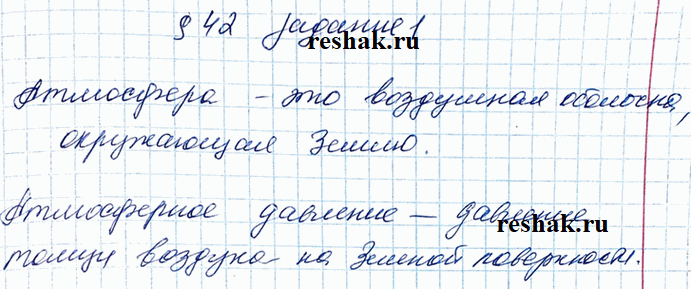 § 42 Задание 1
reshak.ru
Атмосфера – это воздушная оболочка,
окружающая Землю.
Атмосферное давление – давление
reshak.ru
толщи воздуха на Земной поверхности.